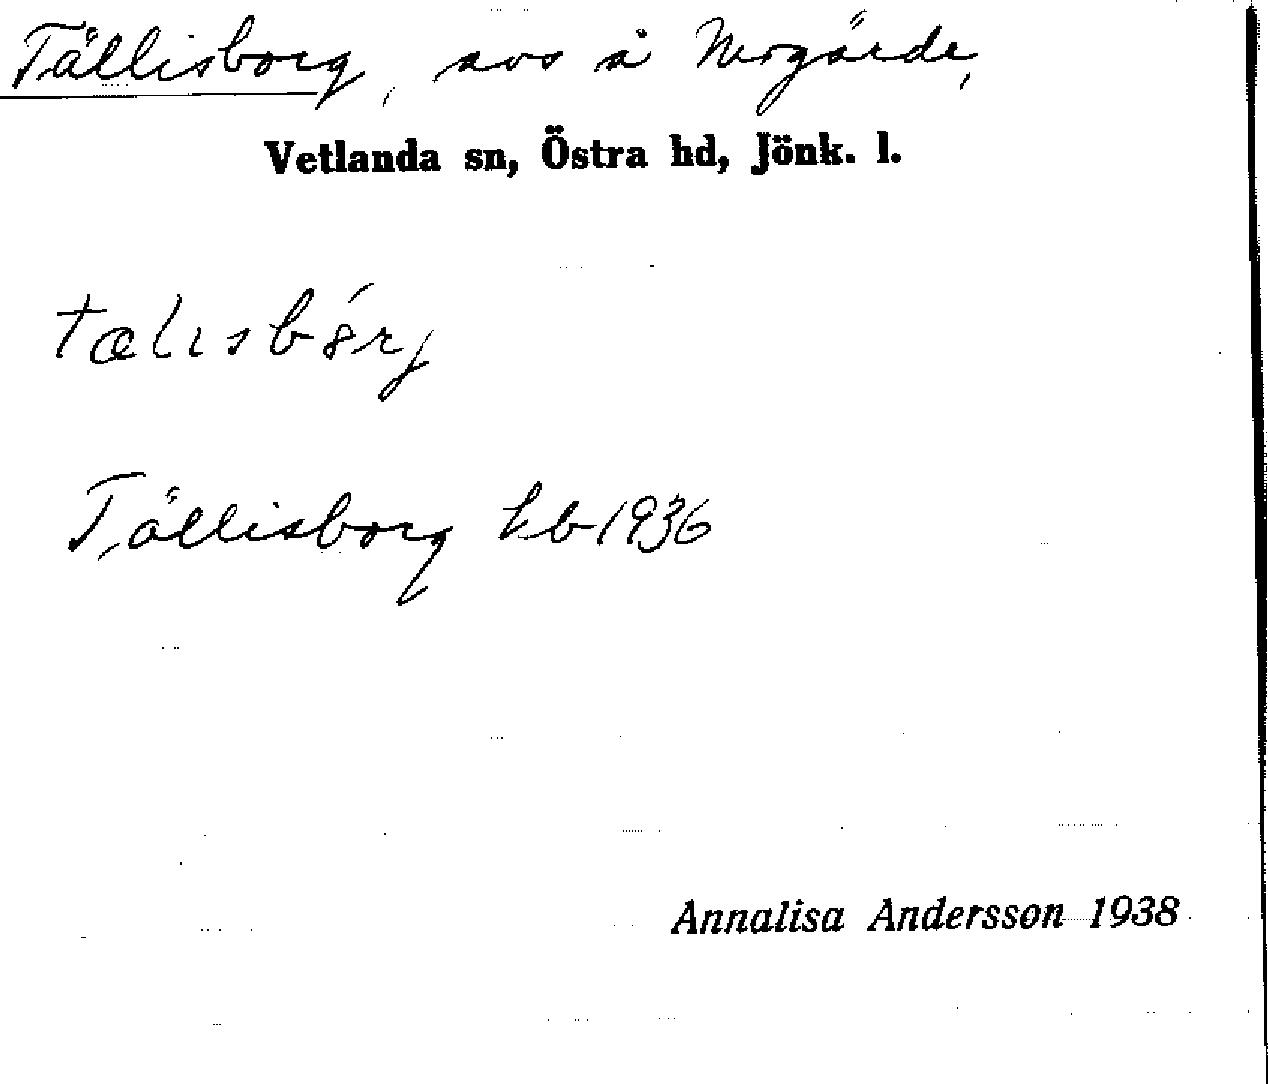 Tällisborg, avs å Nergärde,
Vetlanda sn, Östra hd, Jönk. l.
Tällisborg hb 1936
Annalisa Andersson 1938